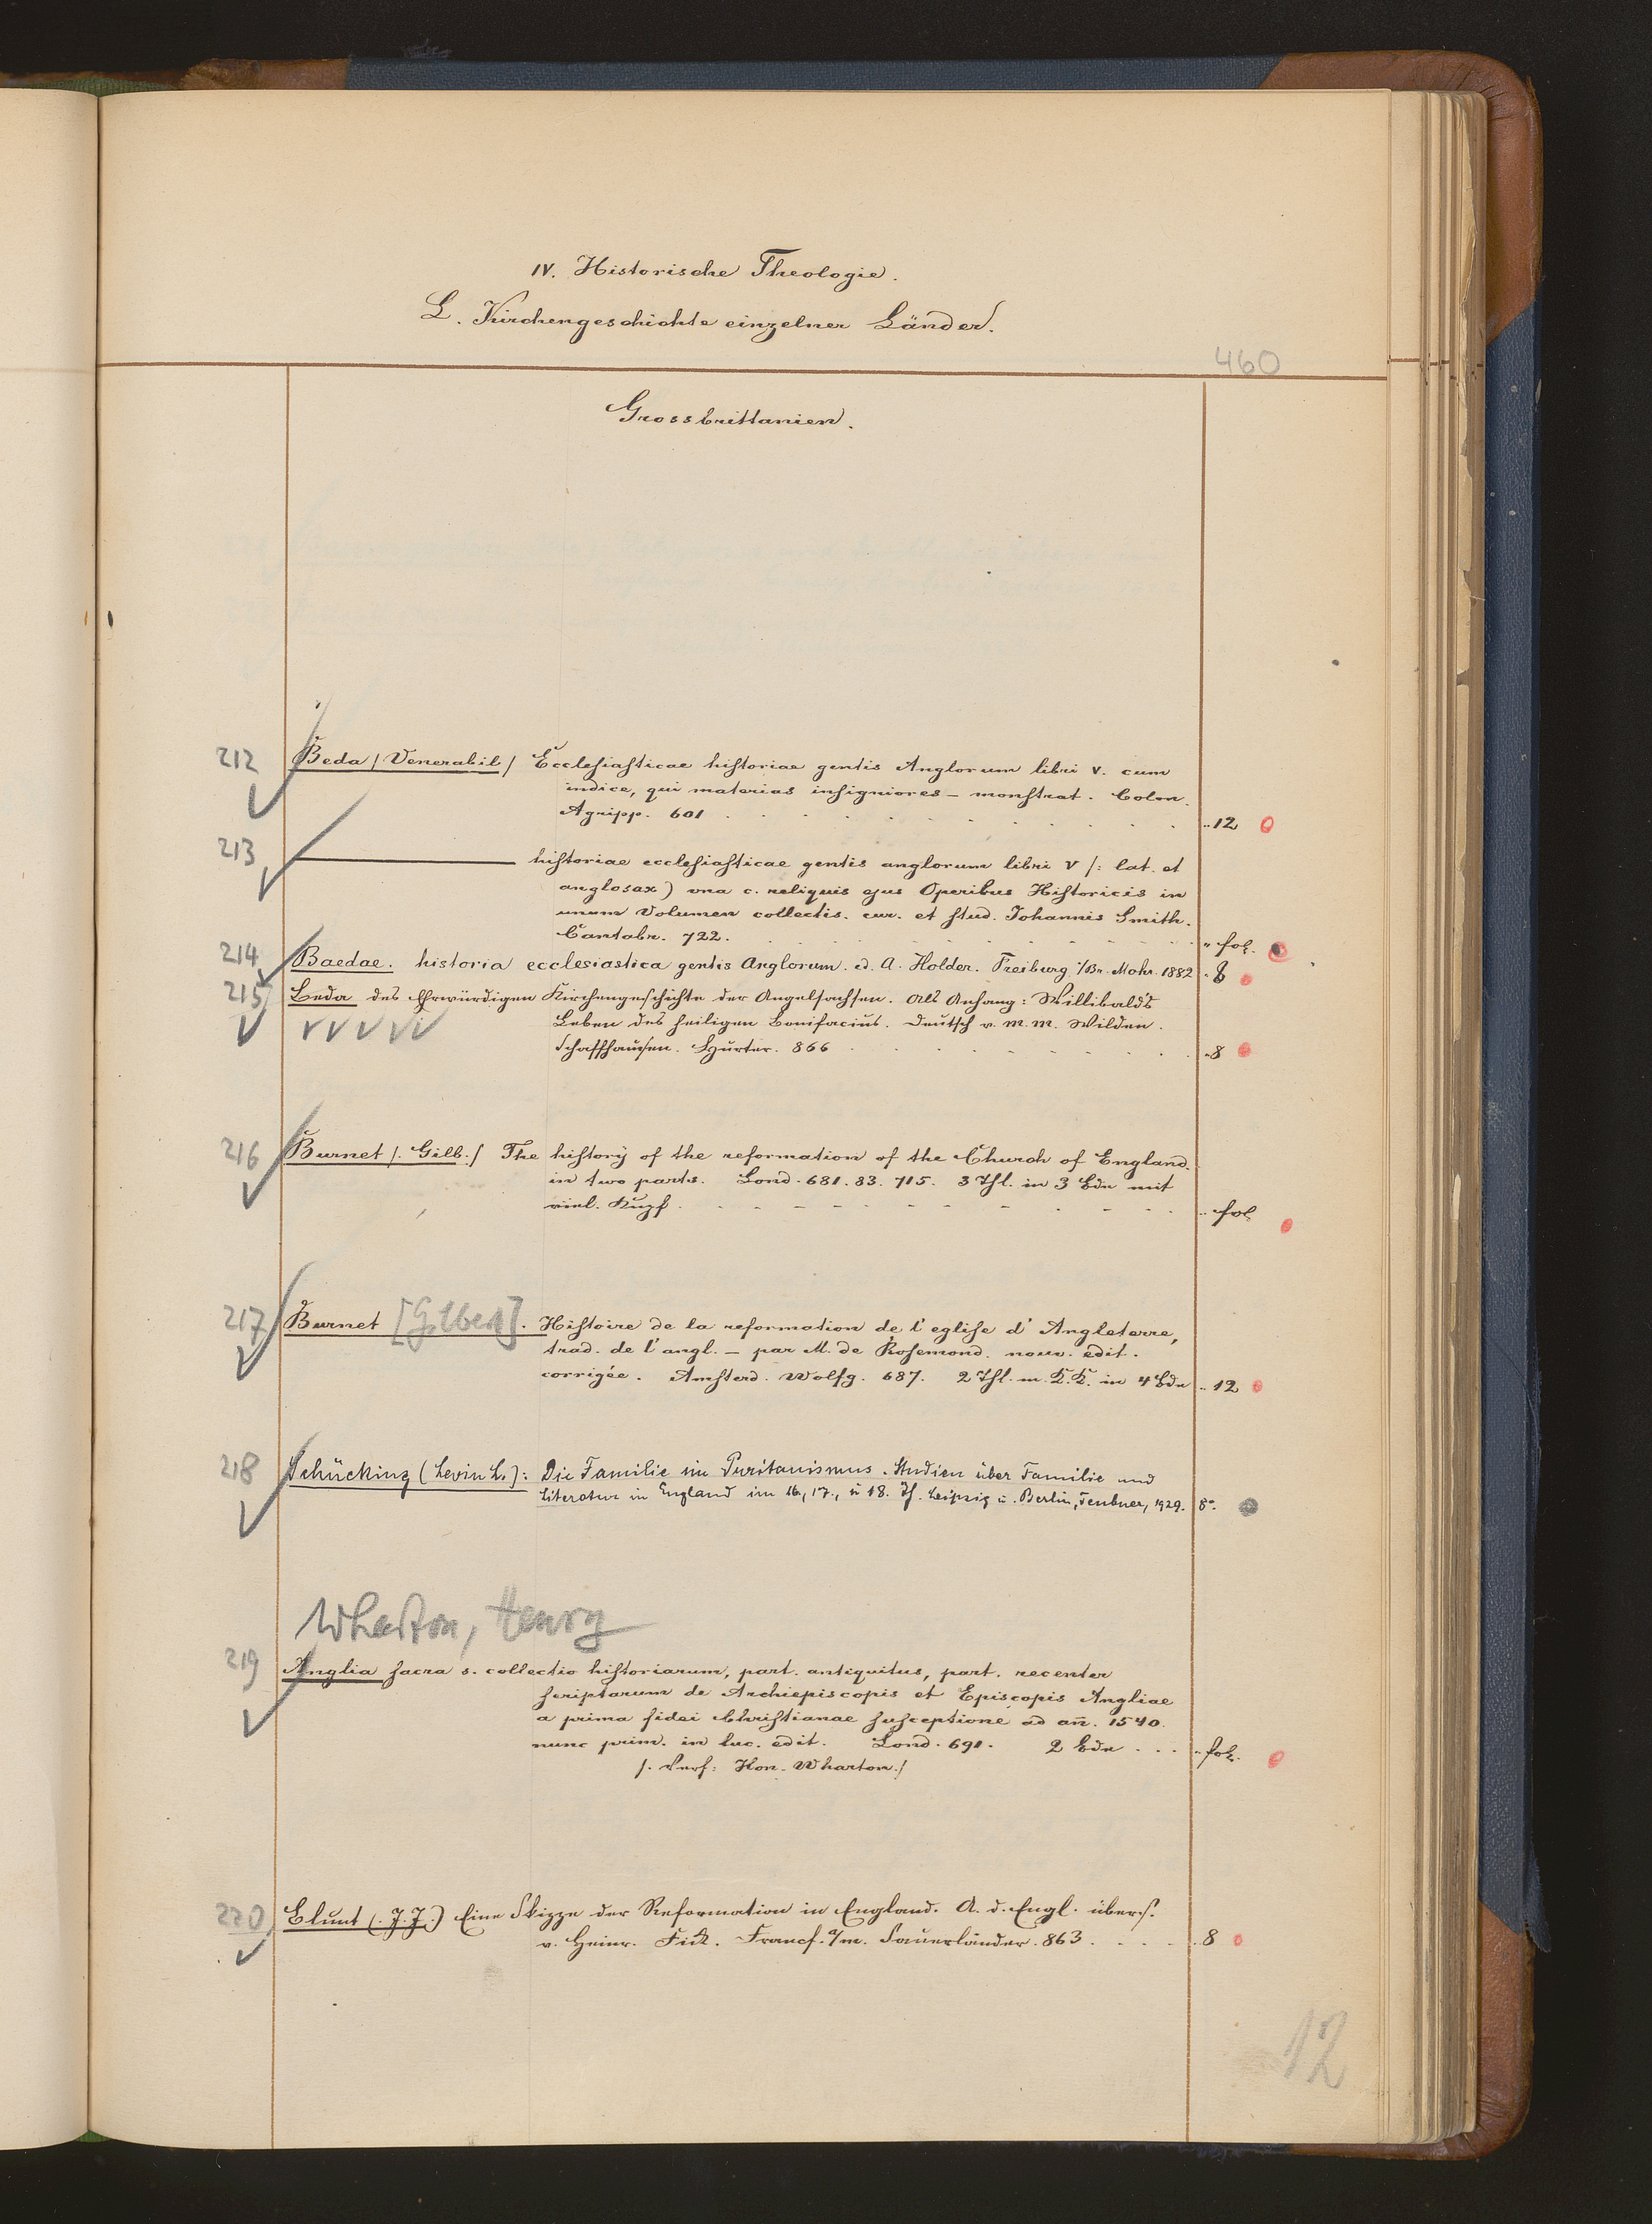 IV. Historische Theologie.
L. Kirchengeschichte einzelner Länder.
460
Grossbrittanien.
212 Beda /Venerabil/ Ecclesiasticae historiae gentis Anglorum libri V. cum
indice, qui materias insigniores – monstrat. Colon.
Agripp. 601 . . . . . . . . . . . . .. 12
213 ——— historiae ecclesiasticae gentis anglorum libri V /: lat. et
anglosax) vna c. reliquis ejus Operibus Historicis in
unum Volumen collectis. cur. et stud. Johannis Smith.
Cantabr. 722. . . . . . . . . . . . .. fol.
214 Baedae. historia ecclesiastica gentis Anglorum. ed. A. Holder. Freiburg i/Br. Mohr. 1882 . 8
215 Beda des Ehrwürdigen Kirchengeschichte der Angelsachsen. Als Anhang: Willibald's
Leben des heiligen Bonifacius. Deutsch v. M. M. Wilden.
Schaffhausen. Hurter. 866 . . . . . . . . . . 8
216 Burnet /. Gilb./ The history of the reformation of the Church of England.
in two parts. Lond. 681. 83. 715. 3 Thl. in 3 Bdn mit
viel. Kupf. . . . . . . . . . . . .. fol
217 Burnet [Gilbert]. Histoire de la reformation de l'eglise d'Angleterre,
trad. de l'angl. – par M. de Rosemond. nouv. edit.
corrigée. Amsterd. Wolfg. 687. 2 Thl. m. K.K. in 4 Bdn .. 12
218 Schücking (Levin L.): Die Familie im Puritanismus. Studien über Familie und
Literatur in England im 16., 17., u 18. Jh. Leipzig u. Berlin, Teubner, 1929. 8°.
Wharton, Henry
219 Anglia sacra s. collectio historiarum, part. antiquitus, part. recenter
scriptarum de Archiepiscopis et Episcopis Angliae
a prima fidei Christianae susceptione ad añ. 1540.
nunc prim. in luc. edit. Lond. 691. 2 Bde . . . .. fol.
/. Verf: Hen. Wharton./
220 Blunt (. J. J.) Eine Skizze der Reformation in England. A. d. Engl. übers.
v. Heinr. Fick. Francf. a/m. Sauerländer. 863 . . . . . 8
12